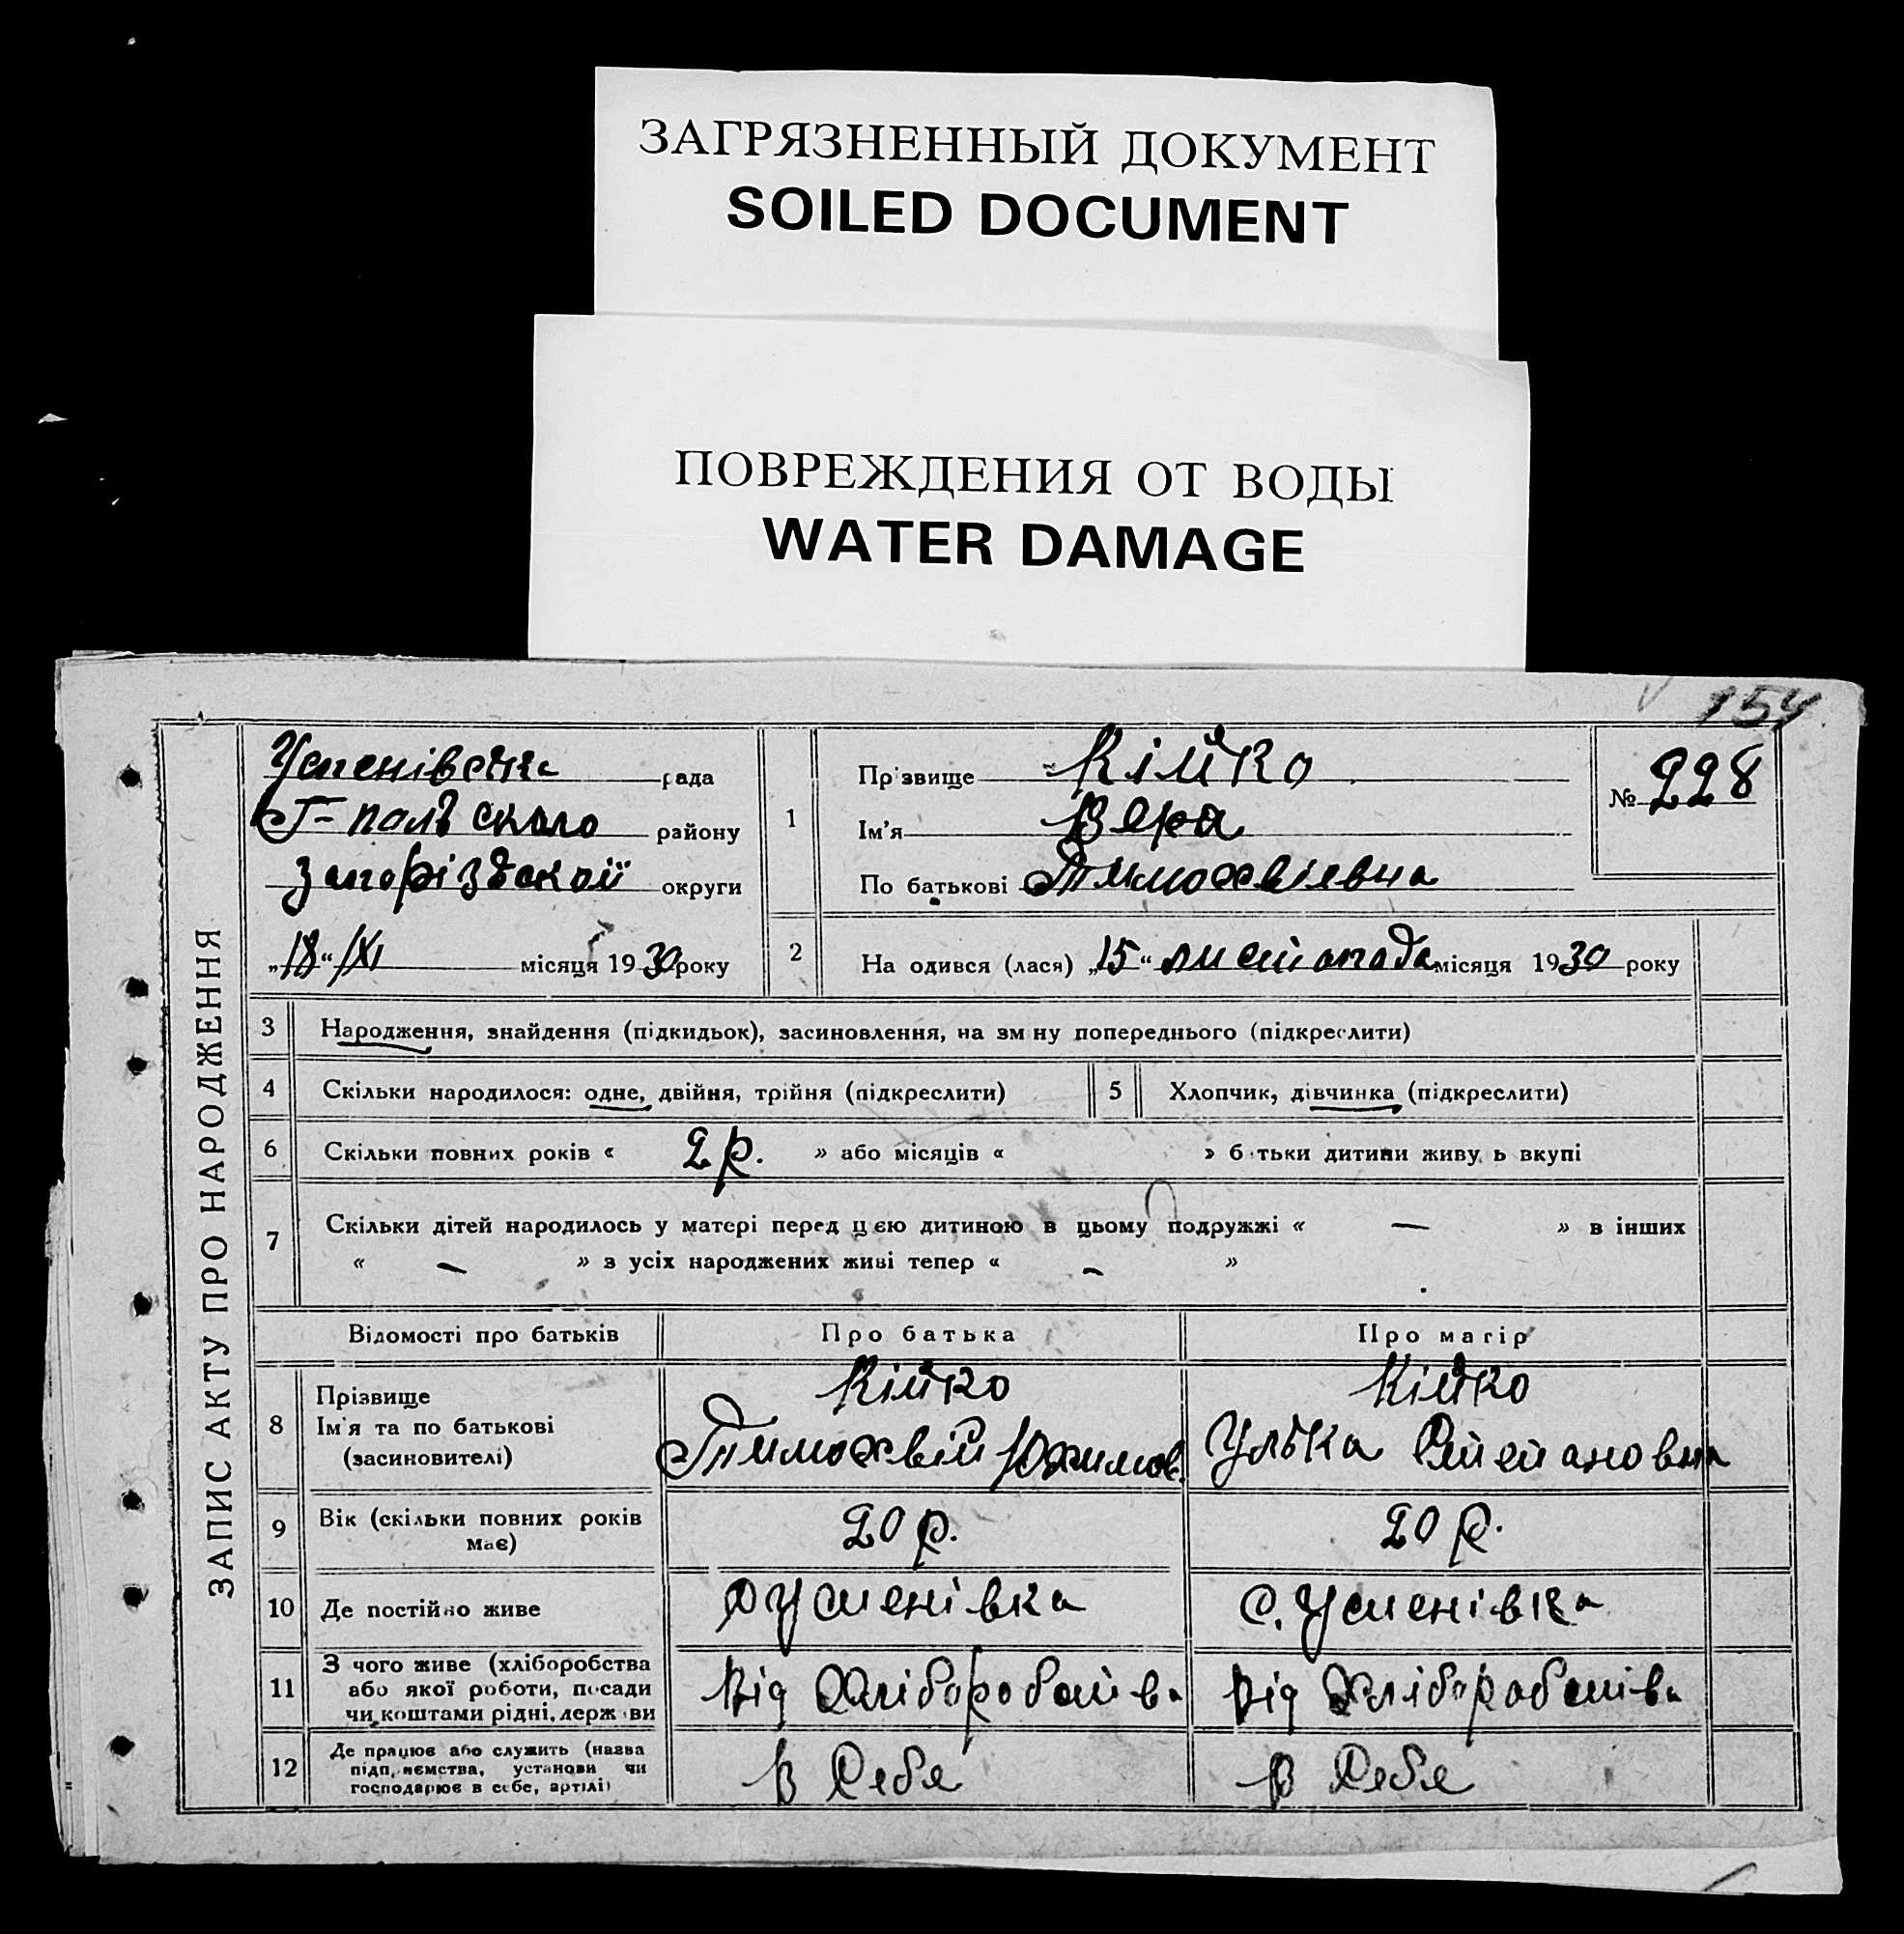 ЗАГРЯЗНЕННЫЙ ДОКУМЕНТ
SOILED DOCUMENT
ПОВРЕЖДЕНИЯ ОТ ВОДЫ
WATER DAMAGE
154
ЗАПИС АКТУ ПРО НАРОДЖЕННЯ
Успенівська рада
Г-польского району
Запоріздской округи
„18“ /XI місяця 1930 року
1 Пр звище Кійко
Ім'я Вера
По батькові Тимохвіевна
№ 228
2 На одився (лася) „15“ листопада місяця 1930 року
3 Народження, знайдення (підкидьок), засиновлення, на зм ну попереднього (підкреслити)
4 Скільки народилося: одне, двійня, трійня (підкреслити) 5 Хлопчик, дівчинка (підкреслити)
6 Скільки повних років « 2 р. » або місяців « » б тьки дитини живу ь вкупі
7 Скільки дітей народилось у матері перед цією дитиною в цьому подружжі « — » в інших
« — » з усіх народжених живі тепер « — »
Відомості про батьків Про батька Про матір
8 Прізвище Кійко Кійко
Ім'я та по батькові Тимохвій Юхимов. Улька Степановна
(засиновителі)
9 Вік (скільки повних років має) 20 р. 20 р.
10 Де постійно живе с Успенівка с. Успенівка
11 З чого живе (хліборобства або якої роботи, посади чи коштами рідні, держ ви Від Хліборобства Від Хліборобства
12 Де працює або служить (назва підп, иємства, установи чи господарює в себе, артілі) в Себе в Себе